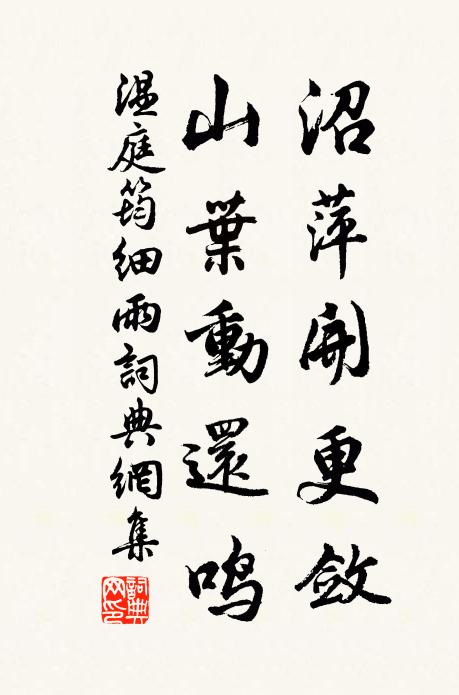 沼萍開更斂
山葉動還鳴
温庭筠細雨詞典網集
詞典网印